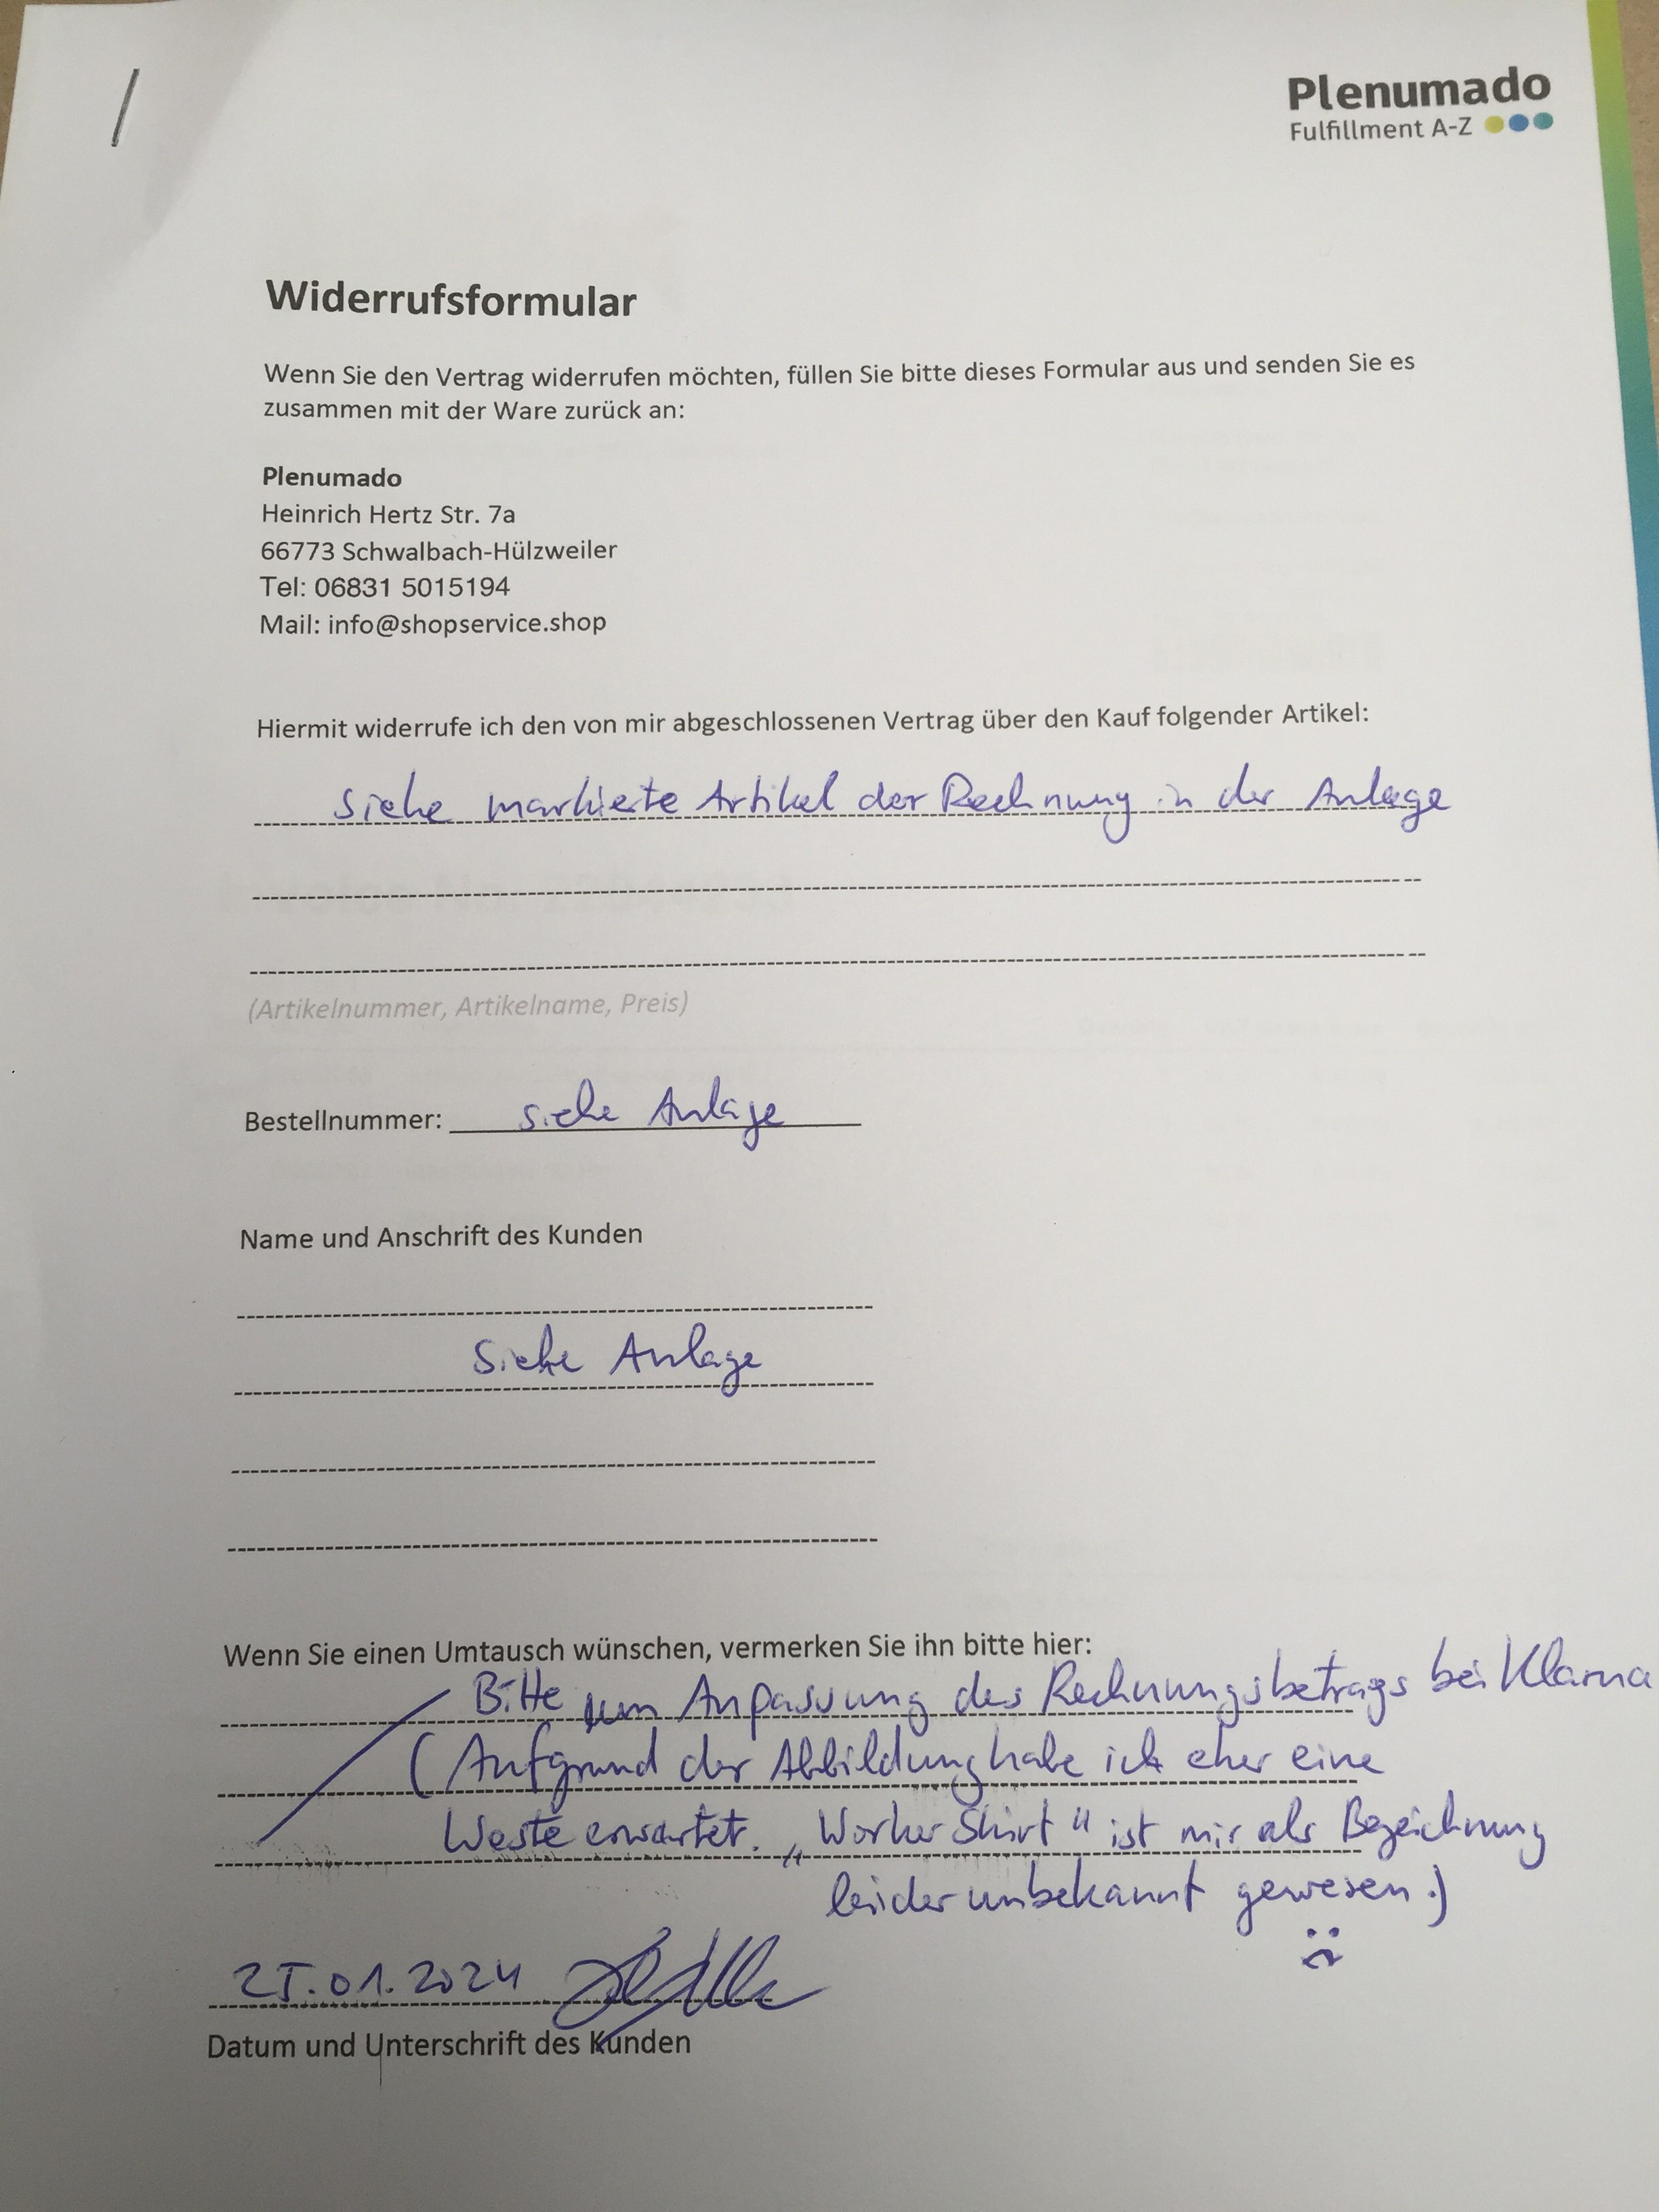 /
Plenumado
Fulfillment A-Z
Widerrufsformular
Wenn Sie den Vertrag widerrufen möchten, füllen Sie bitte dieses Formular aus und senden Sie es
zusammen mit der Ware zurück an:
Plenumado
Heinrich Hertz Str. 7a
66773 Schwalbach-Hülzweiler
Tel: 06831 5015194
Mail: info@shopservice.shop
Hiermit widerrufe ich den von mir abgeschlossenen Vertrag über den Kauf folgender Artikel:
siehe markierte Artikel der Rechnung in der Anlage
(Artikelnummer, Artikelname, Preis)
Bestellnummer: siehe Anlage
Name und Anschrift des Kunden
Siehe Anlage
Wenn Sie einen Umtausch wünschen, vermerken Sie ihn bitte hier:
Bitte um Anpassung des Rechnungsbetrags bei Klarna
(Aufgrund der Abbildung habe ich eher eine
Weste erwartet. „Worker Shirt" ist mir als Bezeichnung
leider unbekannt gewesen.)
25.01.2024
Datum und Unterschrift des Kunden